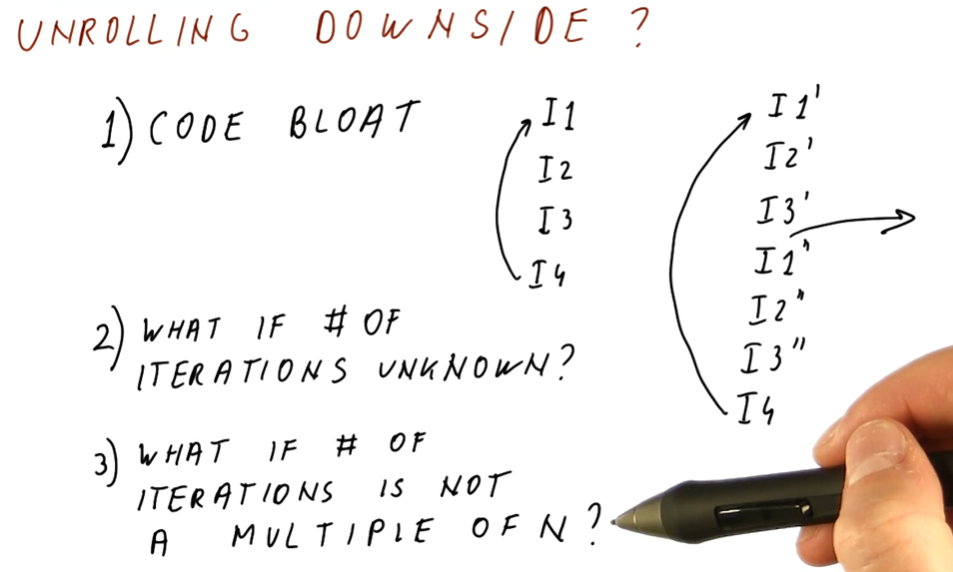 UNROLLING DOWNSIDE ?
1) CODE BLOAT
I1
I2
I3
I4
I1'
I2'
I3'
I1"
I2"
I3"
I4
2) WHAT IF # OF
ITERATIONS UNKNOWN?
3) WHAT IF # OF
ITERATIONS IS NOT
A MULTIPLE OF N?